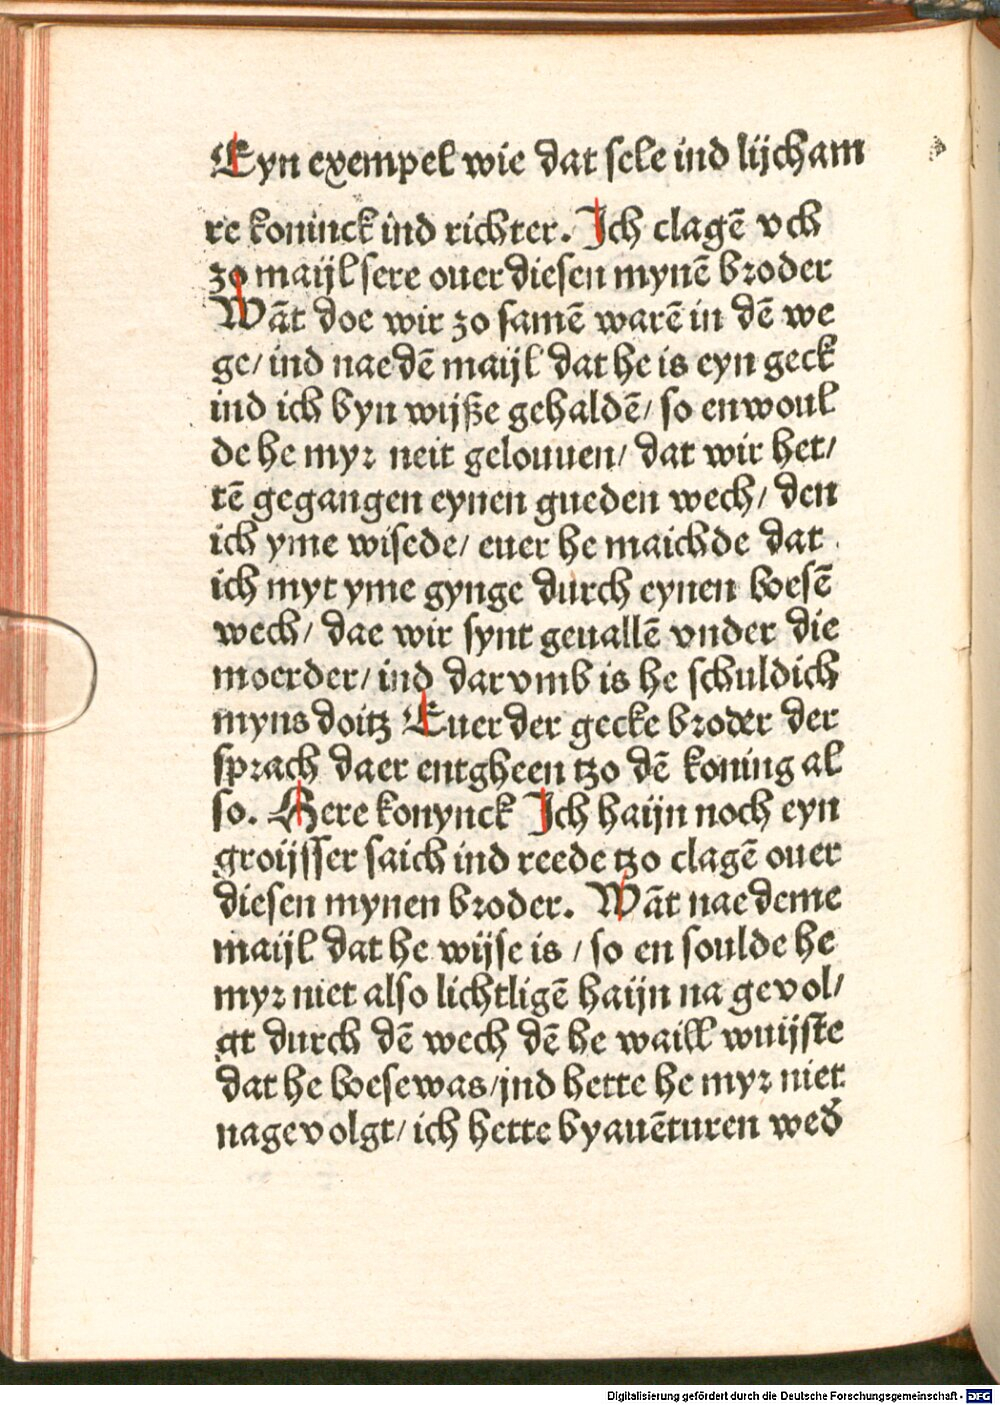 Eyn exempel wie dat sele ind lijcham
re koninck ind richter. Ich clagē vch
zo maijl sere ouer diesen mynē broder
Wāt doe wir zo samē warē in dē we
ge/ ind nae dē maijl dat he is eyn geck
ind ich byn wijße gehaldē/ so enwoul
de he myr neit gelouuen/ dat wir het/
tē gegangen eynen gueden wech/ den
ich yme wisede/ euer he maichde dat
ich myt yme gynge durch eynen boesē
wech/ dae wir synt geuallē vnder die
moerder/ ind dar vmb is he schuldich
myns doitz Euer der gecke broder der
sprach daer entgheen tzo dē koning al
so. Here konynck Ich haijn noch eyn
groijsser saich ind reede tzo clagē ouer
diesen mynen broder. Wāt nae deme
maijl dat he wijse is / so en soulde he
myr niet also lichtligē haijn na gevol/
gt durch dē wech dē he waill wuijste
dat he boese was/ind hette he myr niet
nagevolgt/ ich hette by auēturen wed̄
Digitalisierung gefördert durch die Deutsche Forschungsgemeinschaft - DFG